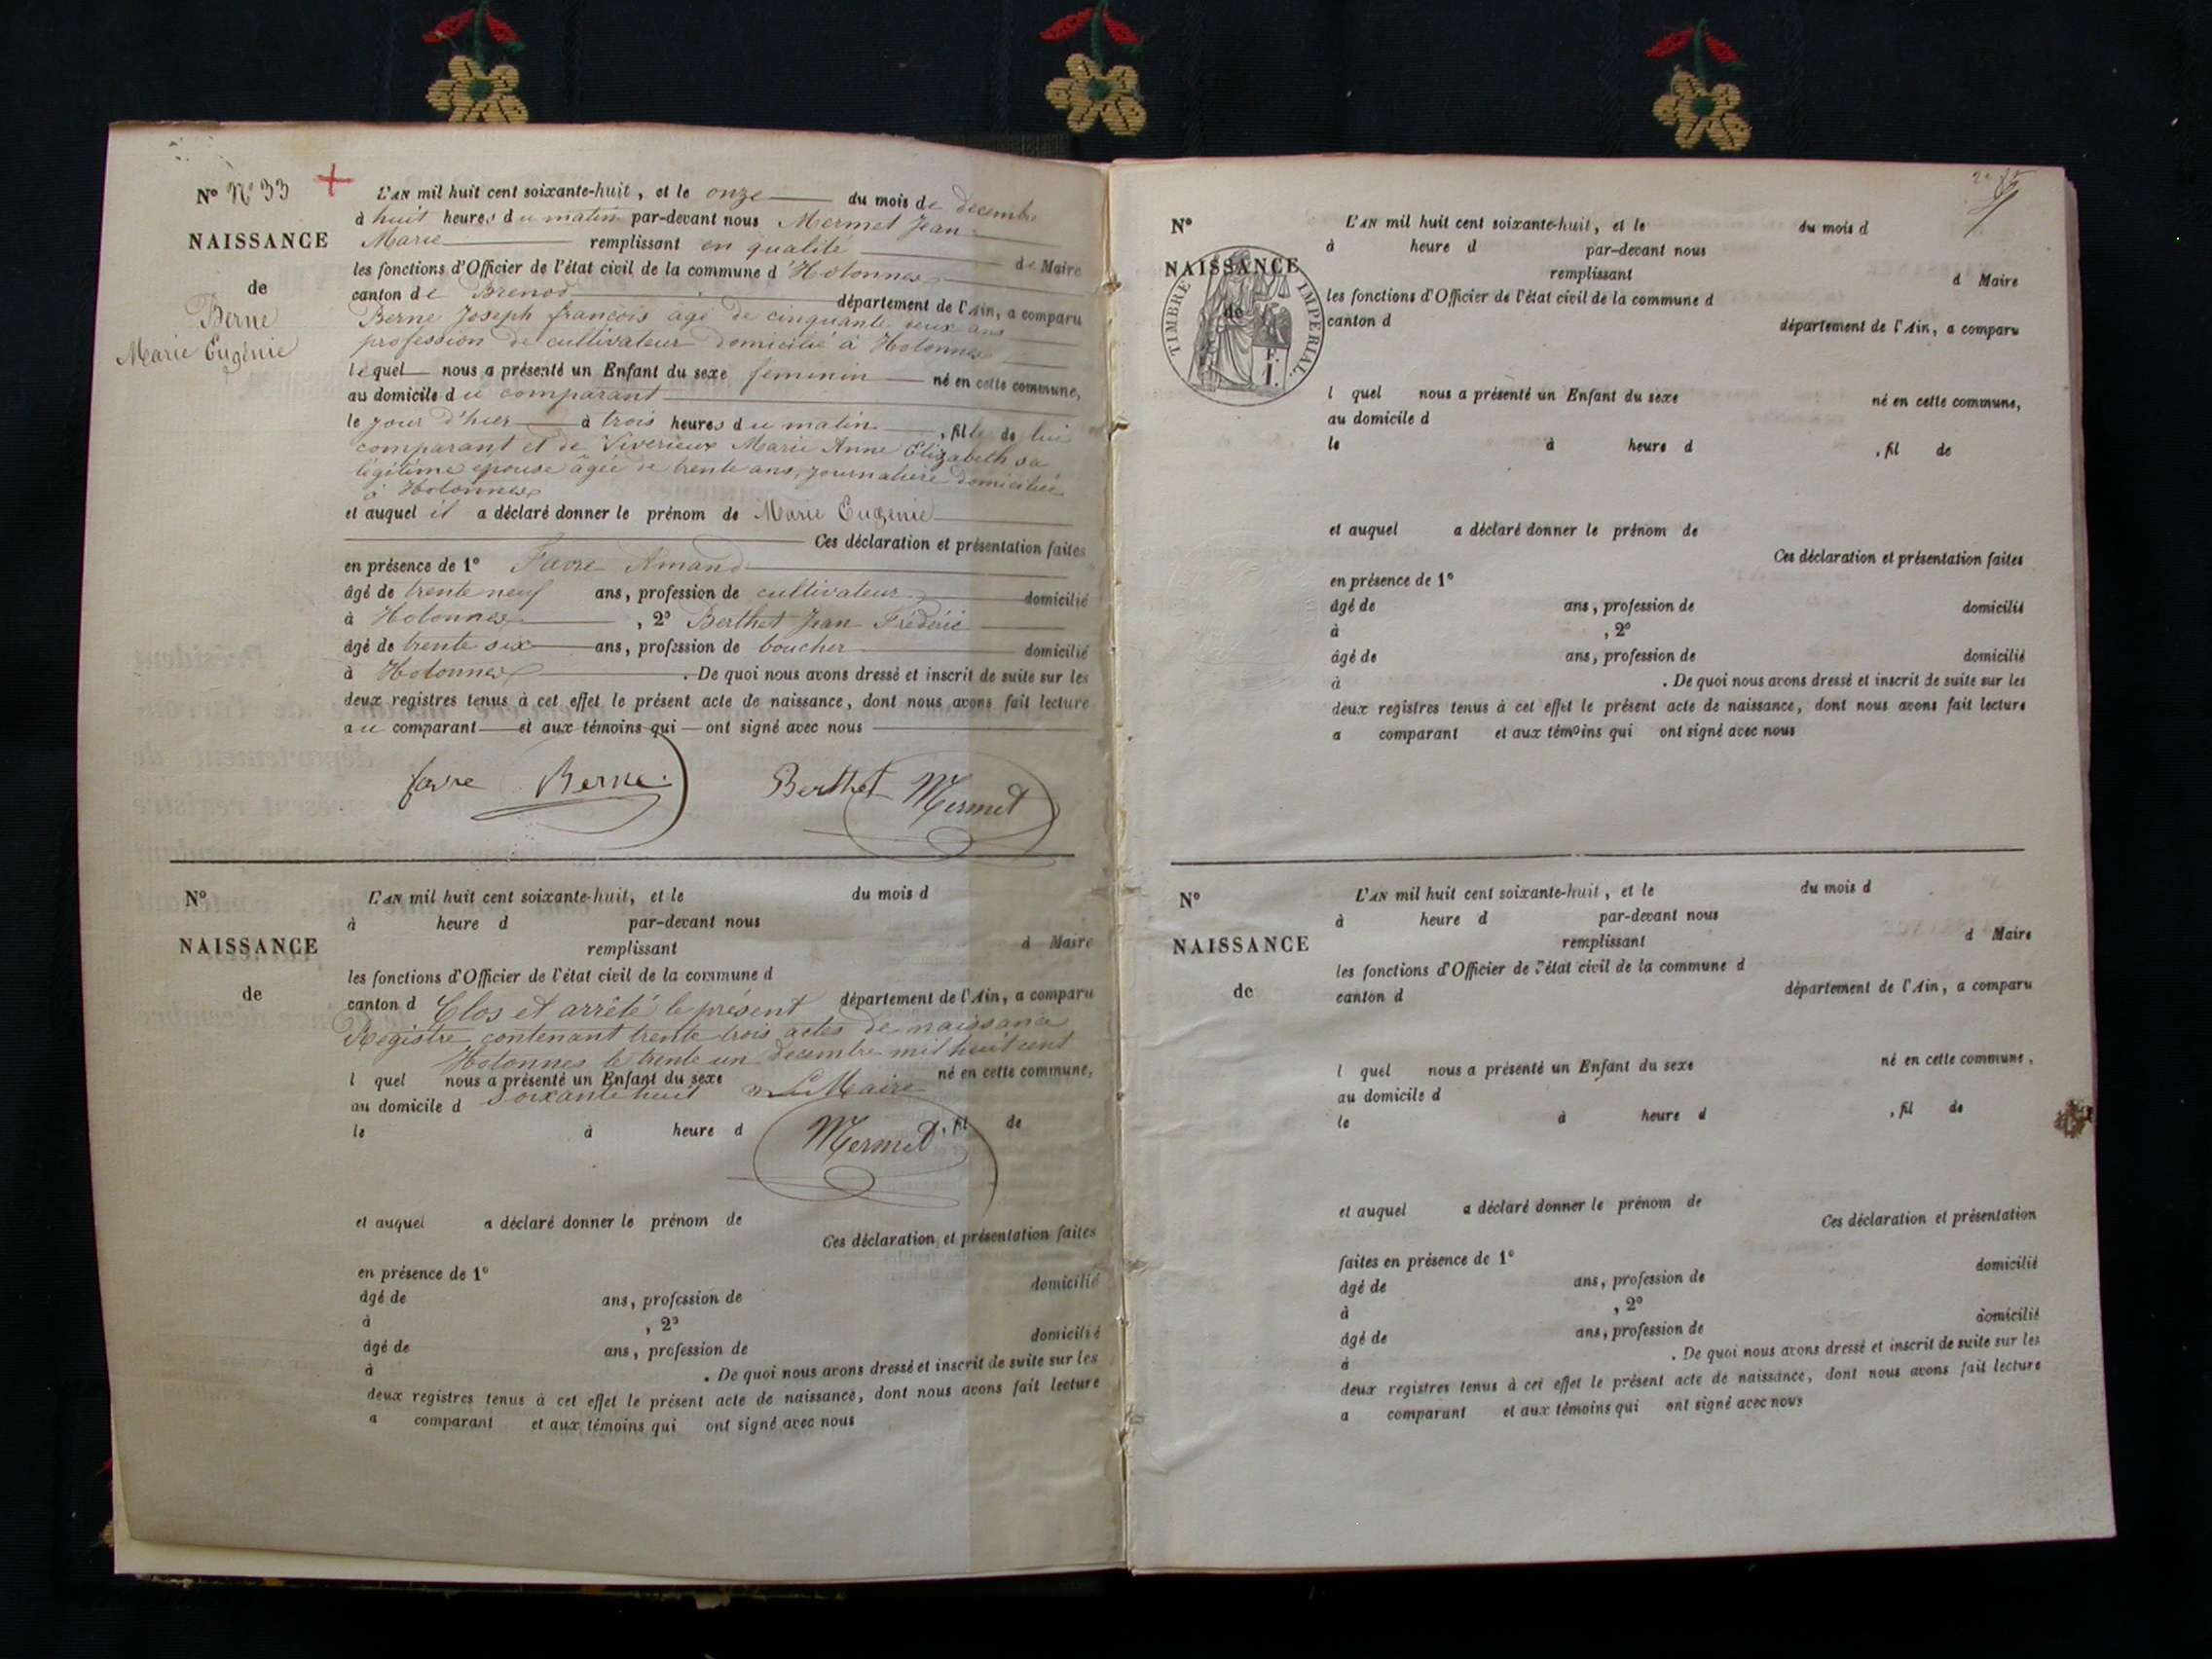 N° N° 33 +
NAISSANCE
de
Berne
Marie Eugénie
L'AN mil huit cent soixante-huit, et le onze du mois de decembre
à huit heures du matin par-devant nous Mermet Jean
Marie remplissant en qualité de Maire
les fonctions d'Officier de l'état civil de la commune d'Hotonnes
canton de Brenod département de l'Ain, a comparu
Berne Joseph françois âgé de cinquante deux ans
profession de cultivateur domicilié à Hotonnes
lequel nous a présenté un Enfant du sexe féminin né en cette commune,
au domicile du comparant
le jour d'hier à trois heures du matin, fille de lui
comparant et de Marie Anne Elizabeth sa
légitime épouse âgée de trente ans, journalière domiciliée
à Hotonnes
et auquel il a déclaré donner le prénom de Marie Eugénie
Ces déclaration et présentation faites
en présence de 1° Favre Amand
âgé de trente neuf ans, profession de cultivateur domicilié
à Hotonnes, 2° Berthet Jean Frédéric
âgé de trente six ans, profession de boucher domicilié
à Hotonnes. De quoi nous avons dressé et inscrit de suite sur les
deux registres tenus à cet effet le présent acte de naissance, dont nous avons fait lecture
au comparant et aux témoins qui ont signé avec nous
favre Berne Berthet Mermet
N°
NAISSANCE
de
L'AN mil huit cent soixante-huit, et le du mois d
à heure d par-devant nous
remplissant d Maire
les fonctions d'Officier de l'état civil de la commune d
canton d département de l'Ain, a comparu
Clos et arrêté le présent
Registre contenant trente trois actes de naissance
Hotonnes le trente un decembre mil huit cent
l quel nous a présenté un Enfant du sexe né en cette commune,
Soixante huit Le Maire
au domicile d
le à heure d , fil de
Mermet
et auquel a déclaré donner le prénom de
Ces déclaration et présentation faites
en présence de 1°
âgé de ans, profession de domicilié
à , 2°
âgé de ans, profession de domicilié
à . De quoi nous avons dressé et inscrit de suite sur les
deux registres tenus à cet effet le présent acte de naissance, dont nous avons fait lecture
a comparant et aux témoins qui ont signé avec nous
N°
NAISSANCE
de
TIMBRE IMPERIAL
L'AN mil huit cent soixante-huit, et le du mois d
à heure d par-devant nous
remplissant d Maire
les fonctions d'Officier de l'état civil de la commune d
canton d département de l'Ain, a comparu
l quel nous a présenté un Enfant du sexe né en cette commune,
au domicile d
le à heure d , fil de
et auquel a déclaré donner le prénom de
Ces déclaration et présentation faites
en présence de 1°
âgé de ans, profession de domicilié
à , 2°
âgé de ans, profession de domicilié
à . De quoi nous avons dressé et inscrit de suite sur les
deux registres tenus à cet effet le présent acte de naissance, dont nous avons fait lecture
a comparant et aux témoins qui ont signé avec nous
N°
NAISSANCE
de
L'AN mil huit cent soixante-huit, et le du mois d
à heure d par-devant nous
remplissant d Maire
les fonctions d'Officier de l'état civil de la commune d
canton d département de l'Ain, a comparu
l quel nous a présenté un Enfant du sexe né en cette commune,
au domicile d
le à heure d , fil de
et auquel a déclaré donner le prénom de
Ces déclaration et présentation
faites en présence de 1°
âgé de ans, profession de domicilié
à , 2°
âgé de ans, profession de domicilié
à . De quoi nous avons dressé et inscrit de suite sur les
deux registres tenus à cet effet le présent acte de naissance, dont nous avons fait lecture
a comparant et aux témoins qui ont signé avec nous